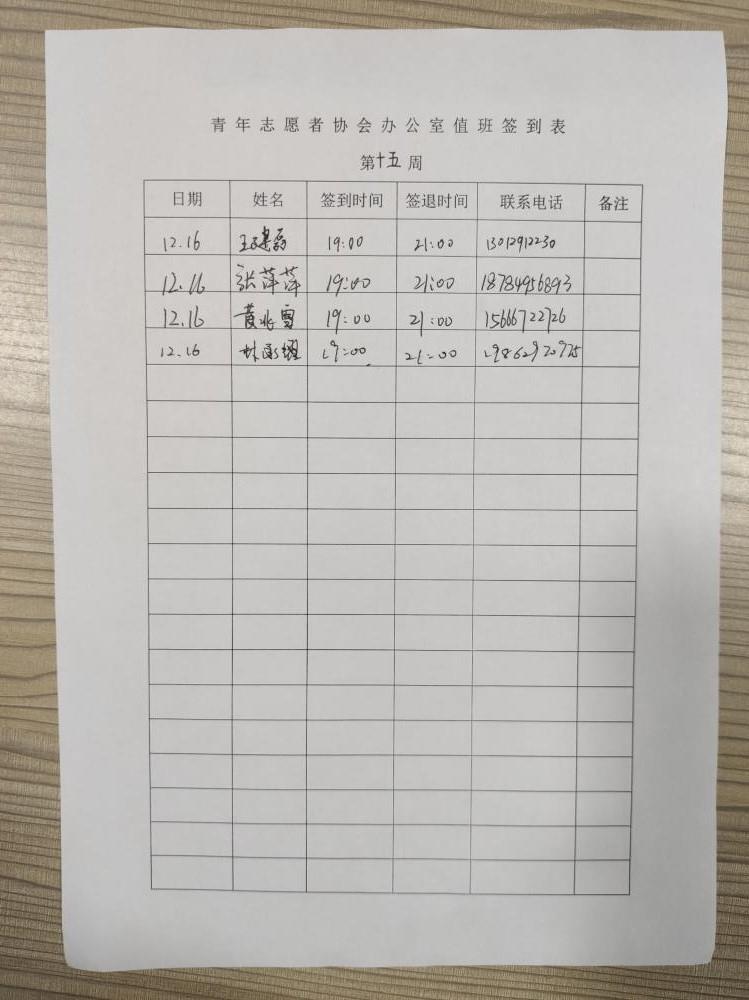 青年志愿者协会办公室值班签到表
第十五周
日期 姓名 签到时间 签退时间 联系电话 备注
12.16 19:00 21:00
12.16 张萍萍 19:00 21:00 18784956893
12.16 黄冰雪 19:00 21:00 15666722726
12.16 19:00 21:00 19862920975